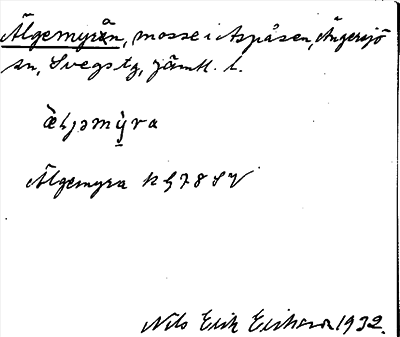 Älgemyrån, mosse i Aspåsen, Ängersjö
sn, Svegs tg, jämtl. l.
æ̀lɟəmỳ̱ra
Älgemyra K G 78 SV
Nils Erik Erikson 1932.